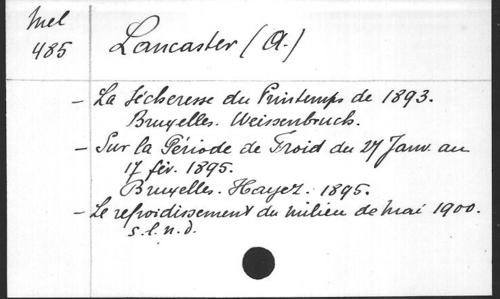 Mel
485
Lancaster (A.)
- La Sécheresse du Printemps de 1893.
Bruxelles. Weissenbruch.
- Sur la Période de Froid du 27 Janv. au
17 fév. 1895.
Bruxelles. Hayez. 1895.
- Le refroidissement du milieu de mai 1900.
s.l.n.d.